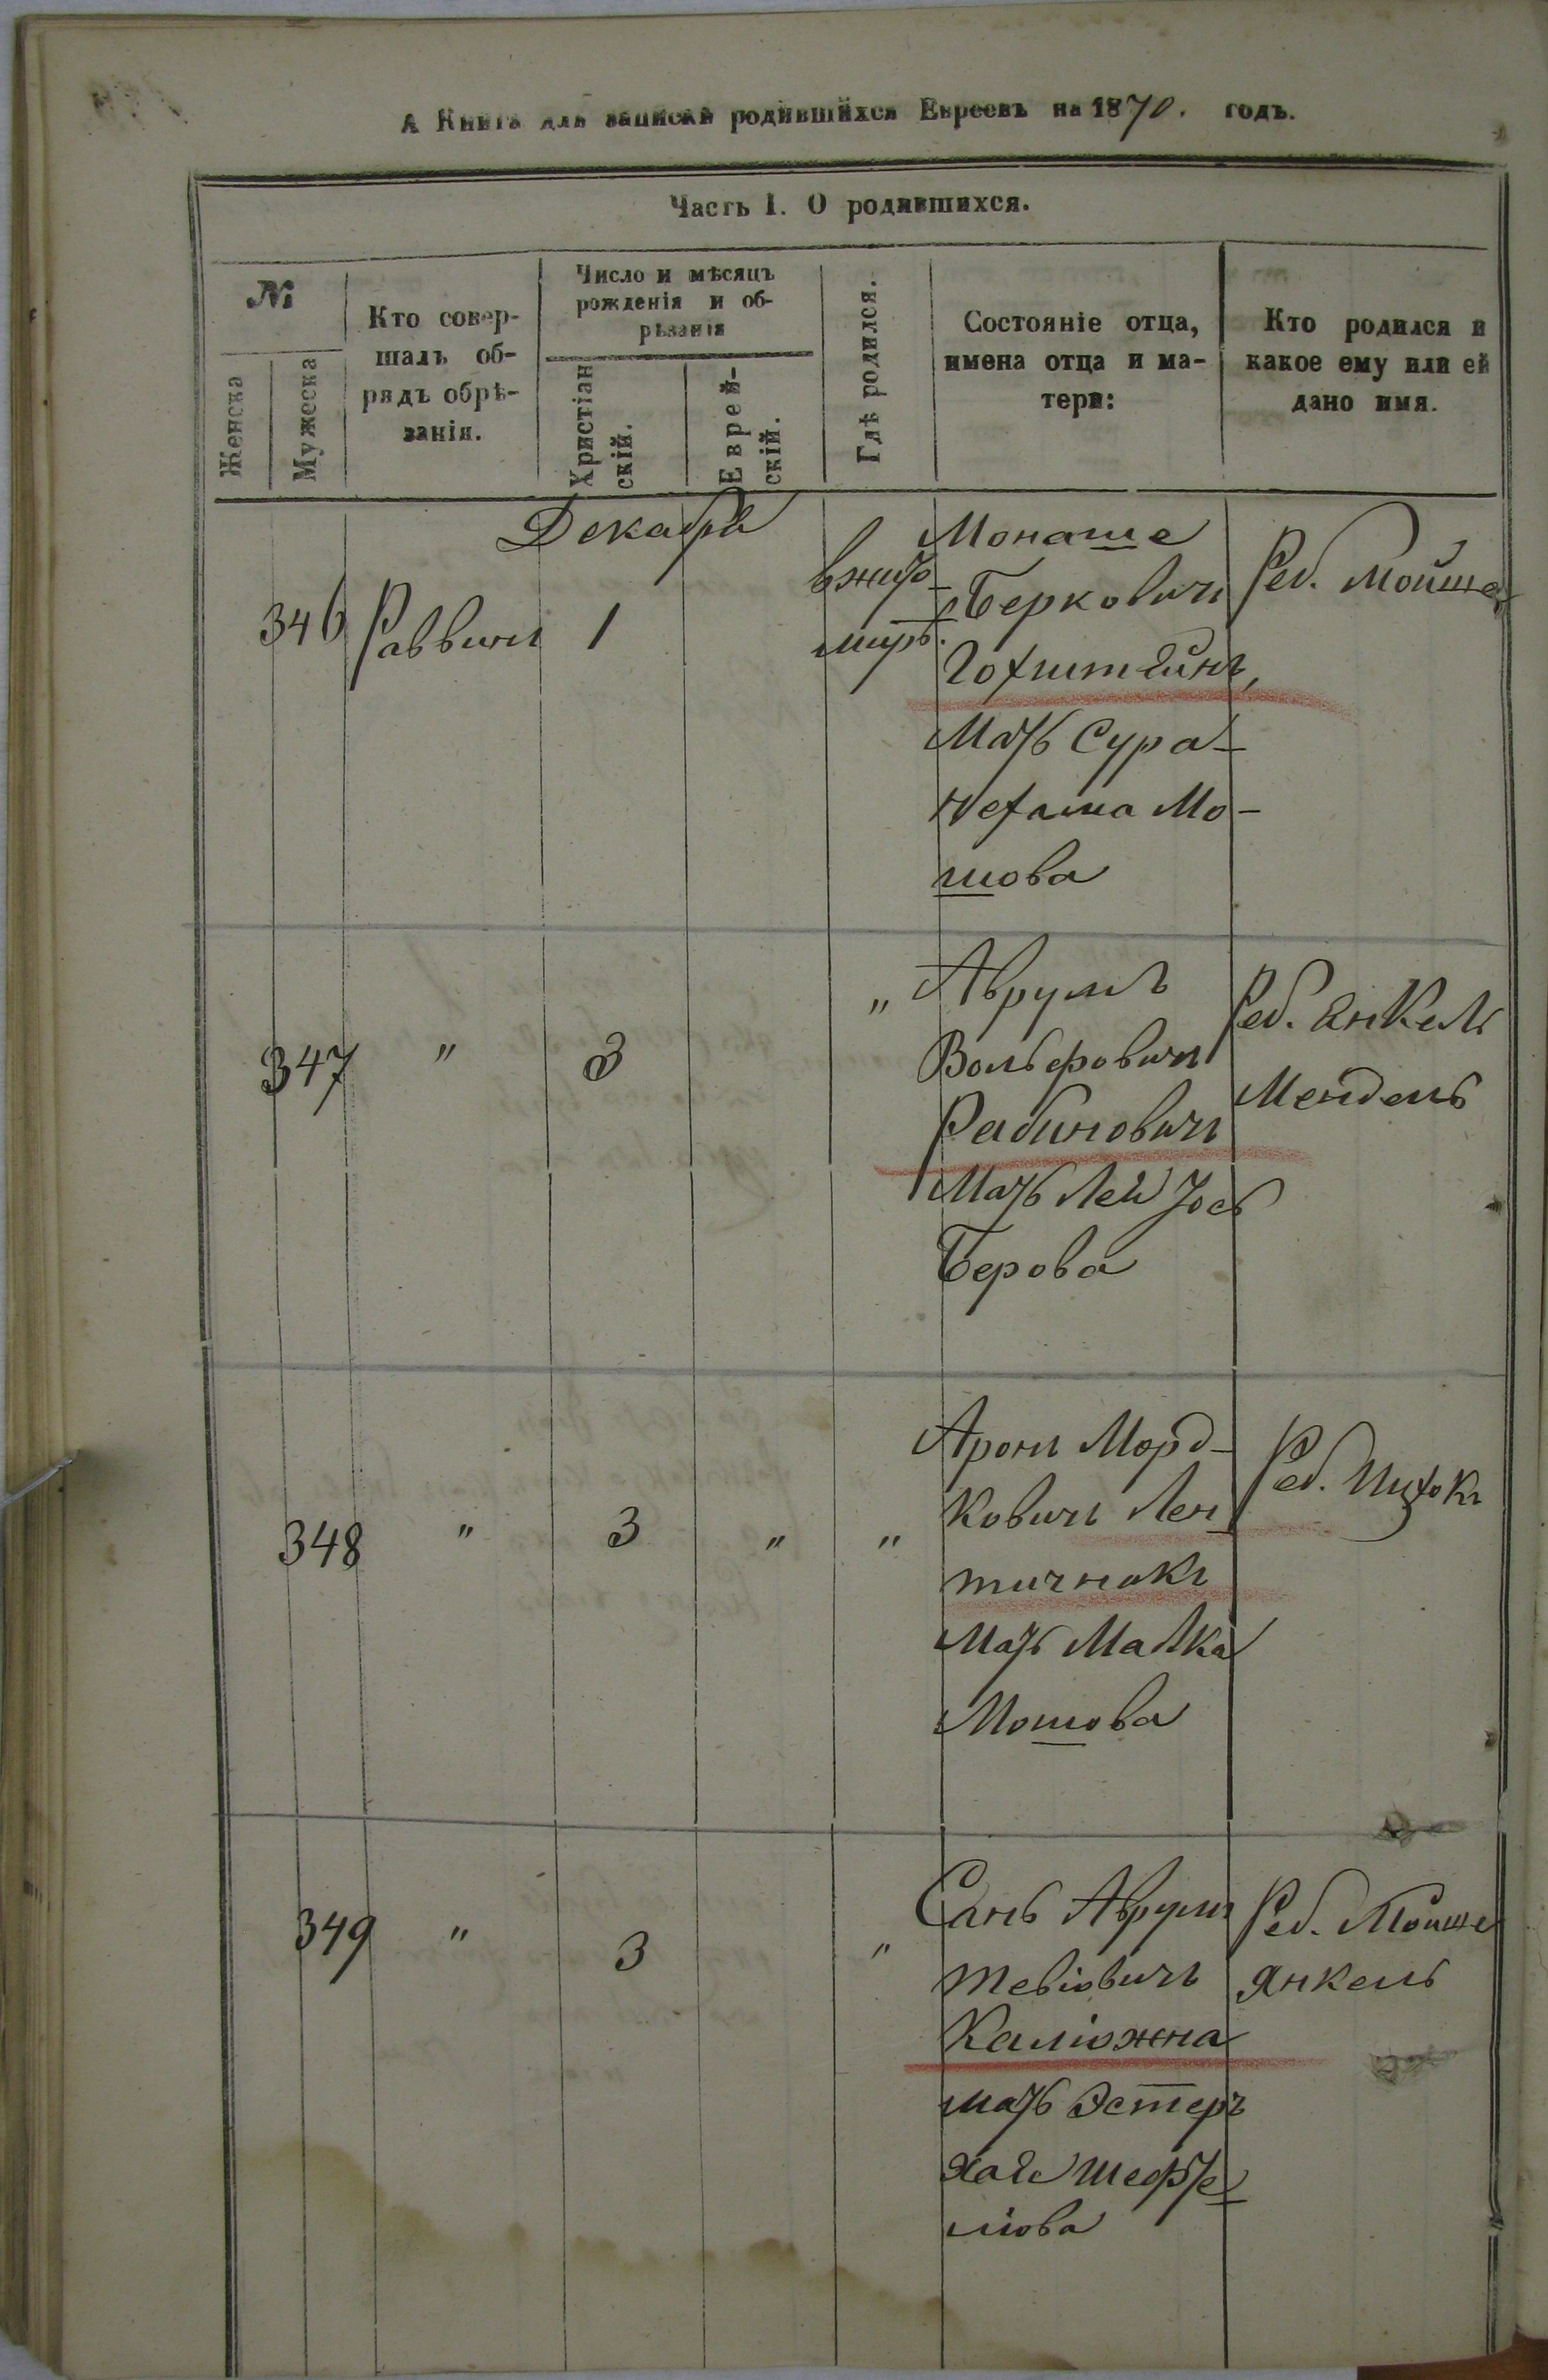 А Книга для записки родившихся Евреевъ на 1870. годъ.
Часть I. О родившихся.
№
Женска
Мужеска
Кто совер-
шалъ об-
рядъ обрѣ-
занія.
Число и мѣсяцъ
рожденія и об-
рѣзанія
Христіан
скій.
Еврей-
скій.
Гдѣ родился.
Состояніе отца,
имена отца и ма-
тери:
Кто родился и
какое ему или ей
дано имя.
Декабря
346 Раввинъ 1
вжито-
миръ.
Монаше
Берковичъ
Гохштейнъ,
Мать Сура-
Нехама Мо-
шова
Реб. Мойше
347 " 3 "
Аврумъ
Вольфовичъ
Рабиновичъ
Мать Лея Iось
Берова
Реб. Янкель
Мендель
348 " 3 " "
Аронъ Морд-
ковичъ Лен-
тичнокъ
Мать Малка
Мошова
Реб. Ицхокъ
349 " 3 "
Аврумъ
Тевіовичъ
Каліожна
мать Эстеръ
Хая
Реб. Мойше
Янкель